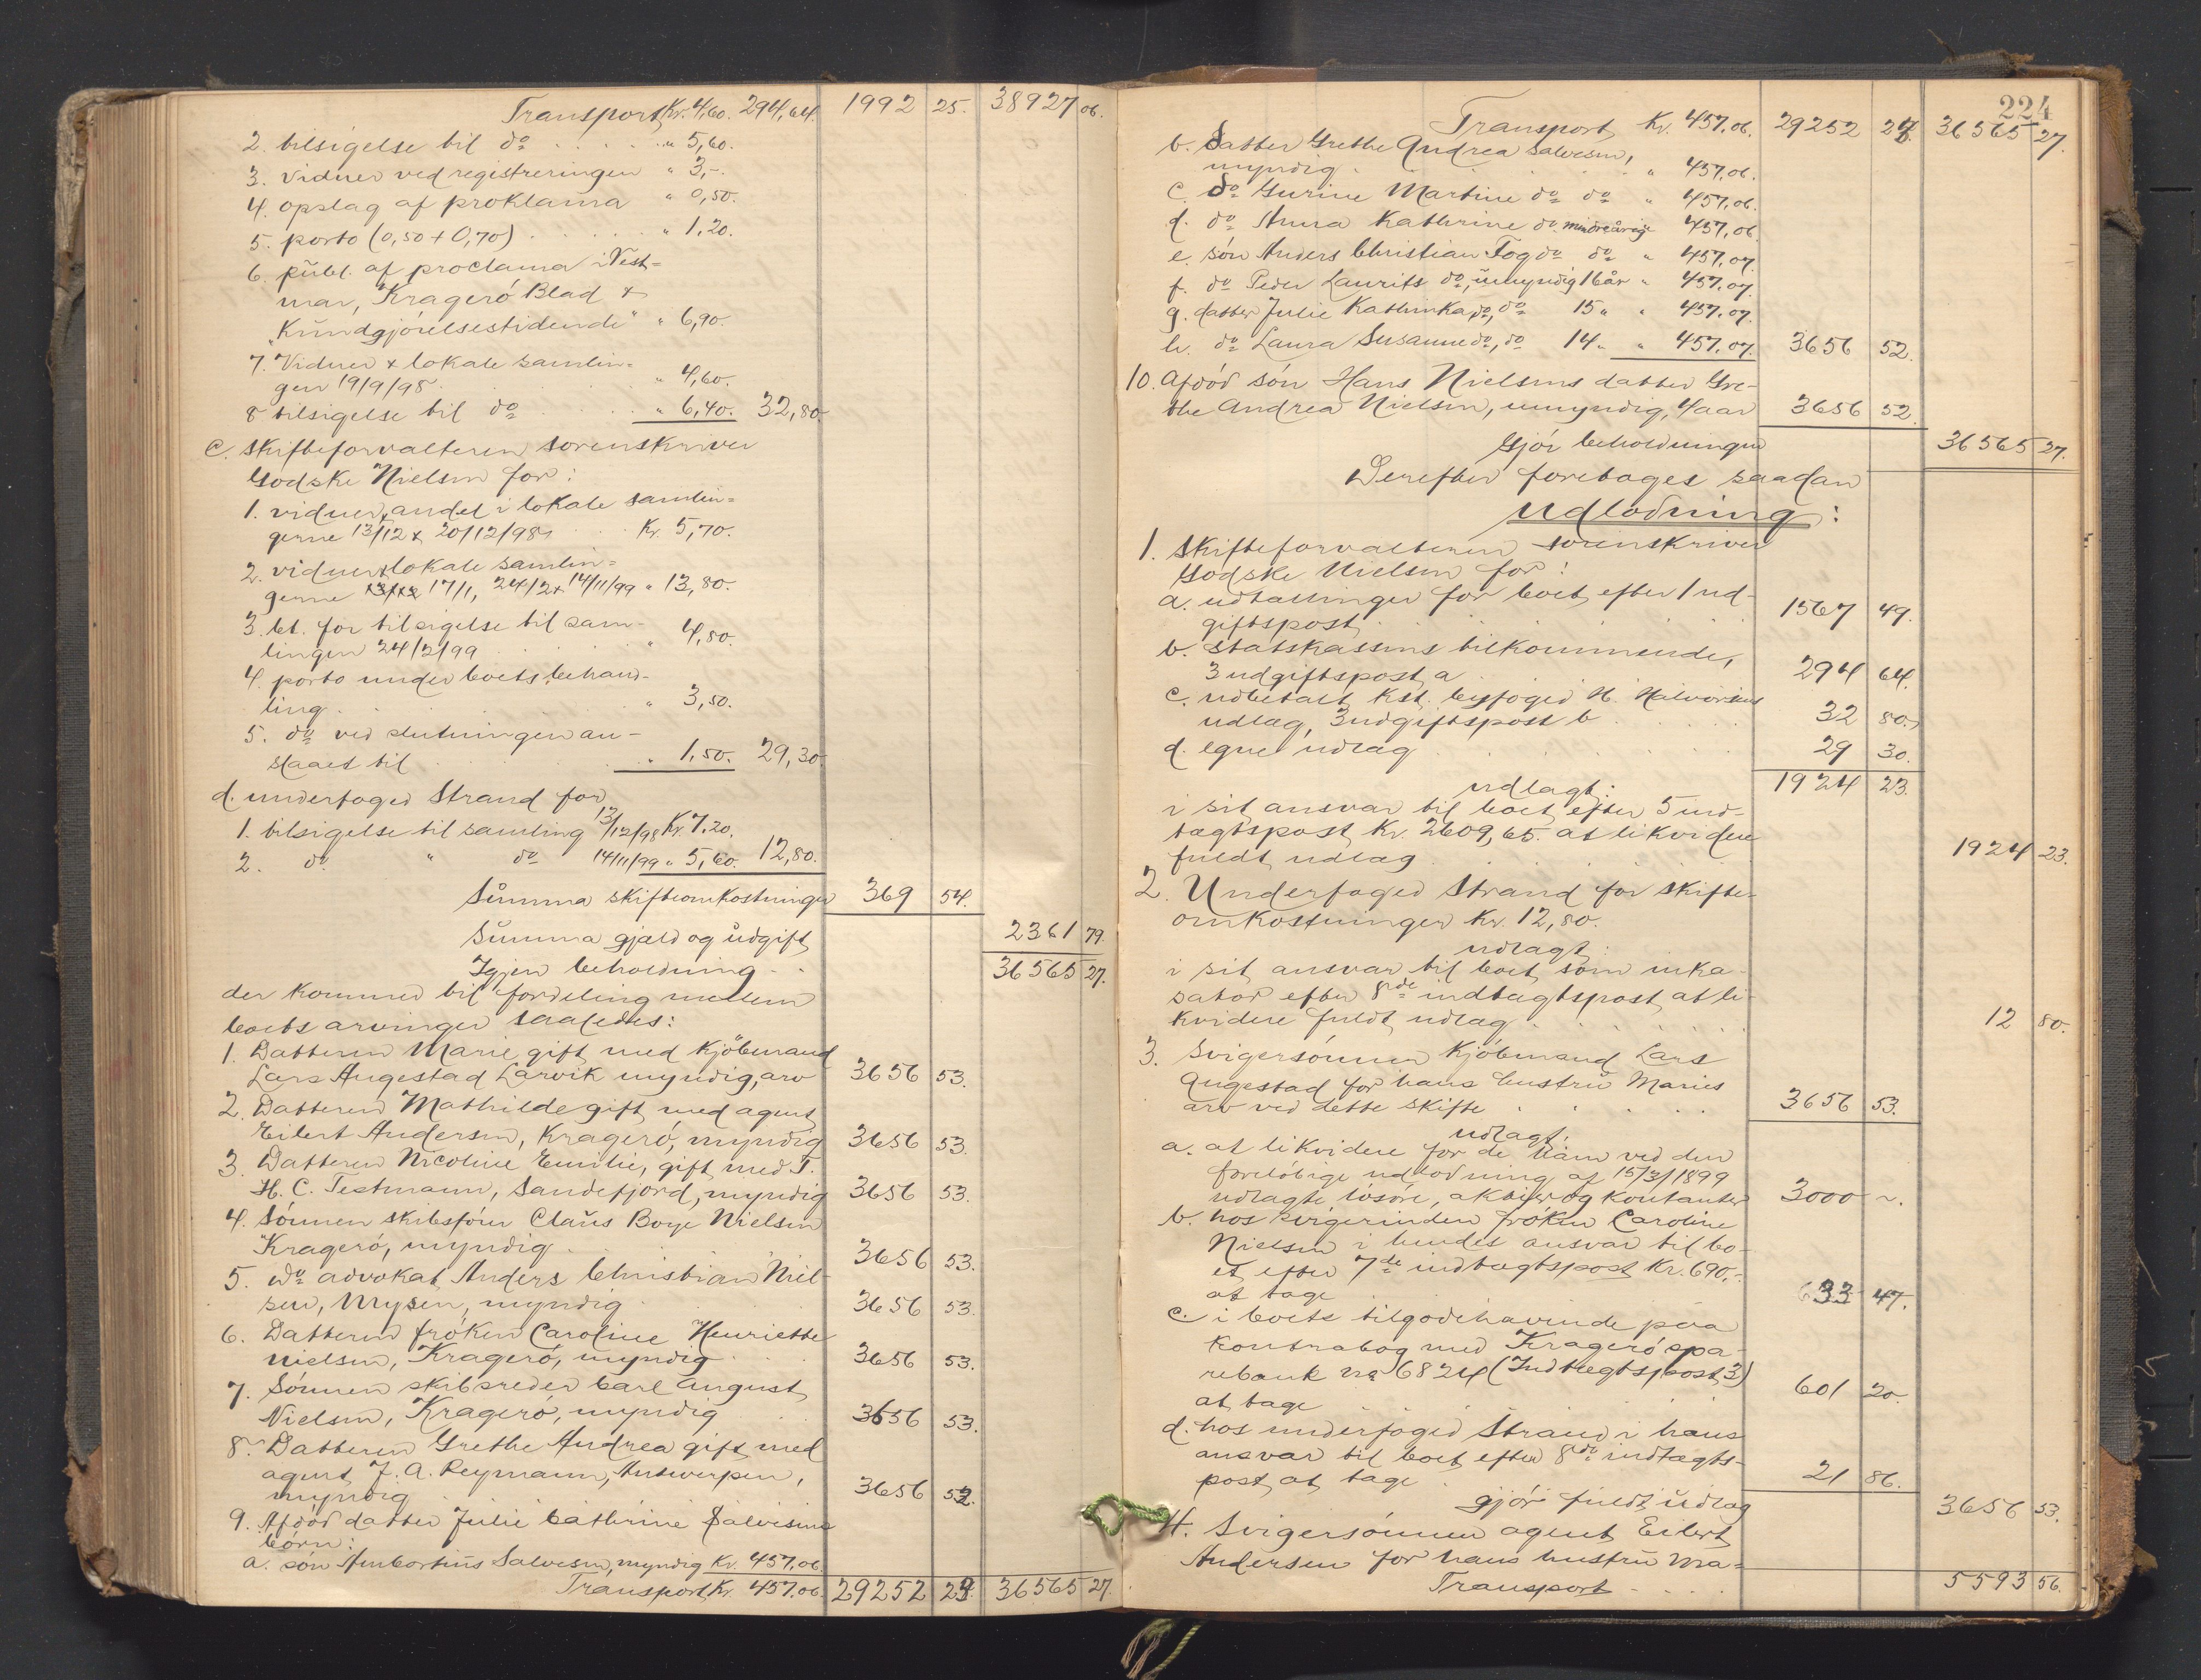 Transport Kr. 4,60. 294,64. 1992 25. 38927 06.
2. tilsigelse til do " 5,60.
3. Vidner ved registreringen " 3,-.
4. opslag af proklama " 0,50.
5. porto (0,50 + 0,70) " 1,20.
6. publ. af proclama i Vest=
mar, Kragerö Blad &
"Kundgjörelsestidende" " 6,90.
7. Vidner & lokale samlin=
gen 19/9/98 " 4,60.
8 tilsigelse til do " 6,40. 32,80.
c. skifteforvalteren sorenskriver
Godske Nielsen for:
1. vidner, andel i lokale samlin=
gerne 13/12 & 20/12/98 Kr. 5,70.
2. vidner & lokale samlin=
gerne 17/1, 24/2 & 14/11/99 " 13,80.
3. bt. for tilsigelse til sam-
lingen 24/2/99 " 4,80.
4. porto under boets behand-
ling " 3,50.
5. do ved slutningen an-
slaaet til " 1,50. 29,30.
d. underfoged Strand for
1. tilsigelse til samling 13/12/98 Kr. 7,20.
2. do " do 14/11/99 " 5,60. 12,80.
Summa skifteomkostninger 369 54.
Summa gjæld og udgift 2361 79.
Igjen beholdning 36565 27.
der kommer til fordeling mellem
boets arvinger saaledes:
1. Datteren Marie gift med Kjöbmand
Lars Angestad Larvik myndig, arv 3656 53.
2. Datteren Mathilde gift med agent
Eilert Andersen, Kragerö, myndig 3656 53.
3. Datteren Nicoline Emilie, gift med T.
H. C. Testmann, Sandefjord, myndig 3656 53.
4. Sönnen skibsförer Claus Boye Nielsen
Kragerö, myndig 3656 53.
5. do advokat Anders Christian Niel-
sen, Mysen, myndig 3656 53.
6. Datteren fröken Caroline Henriette
Nielsen, Kragerö, myndig 3656 53.
7. Sönnen skibsreder Carl August
Nielsen, Kragerö, myndig 3656 53.
8. Datteren Grethe Andrea gift med
agent J. A. Reymann, Antwerpen,
myndig 3656 52.
9. Afdöd datter Julie Cathrine Salvesens
börn:
a. sön Ambortius Salvesen, myndig Kr. 457,06.
Transport Kr. 457,06. 29252 23. 36565 27.
224
Transport Kr. 457,06. 29252 23. 36565 27.
b. Datter Grethe Andrea Salvesen,
myndig " 457,06.
c. do Gurine Martine do do " 457,06.
d. do Anna Kathrine do mindreårig 457,06.
e. sön Anders Christian Fog do do " 457,07.
f. do Peder Laurits do, umyndig 16 år " 457,07.
g. datter Julie Kathinka do, do 15 " " 457,07.
h. do Laura Susanne do, do 14 " " 457,07. 3656 52.
10. Afdöd sön Hans Nielsens datter Gre-
the Andrea Nielsen, umyndig, 4 aar 3656 52.
Gjör beholdningen 36565 27.
Derefter foretages saadan
Udlodning:
1. Skifteforvalteren sorenskriver
Godske Nielsen for:
a. udtællinger for boet efter 1 ud-
giftspost 1567 49.
b. statskassens tilkommende,
3 udgiftspost a 294 64.
c. udbetalt kst. byfoged H. Halvorsens
udlæg, 3 udgiftspost b 32 80.
d. egne udlæg 29 30.
1924 23.
udlagt:
i sit ansvar til boet efter 5 ind-
tægtspost Kr. 2609,65. at likvidere
fuldt udlæg 1924 23.
2. Underfoged Strand for skifte-
omkostninger Kr. 12,80.
udlagt:
i sit ansvar til boet som inka-
sator efter 8de indtægtspost at li-
kvidere fuldt udlæg 12 80.
3. Svigersönnen Kjöbmand Lars
Angestad for hans hustru Maries
arv ved dette skifte 3656 53.
udlagt:
a. at likvidere for de ham ved den
foreløbige udlodning af 15/3/1899
udlagte lösöre, aktier og kontanter 3000 -.
b. hos svigerinden fröken Caroline
Nielsen i hendes ansvar til bo-
et efter 7de indtægtspost Kr. 690,-
at tage 33 47.
c. i boets tilgodehavende paa
kontrabog med Kragerö spa-
rebank no 6824 (Indtægtspost 3)
at tage 601 20.
d. hos underfoged Strand i hans
ansvar til boet efter 8de indtægts-
post at tage 21 86.
gjör fuldt udlæg 3656 53.
4. Svigersönnen agent Eilert
Andersen for hans hustru Ma=
Transport 5593 56.